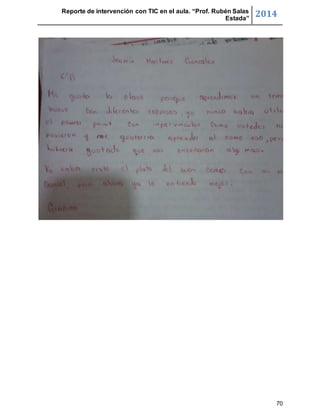 Reporte de intervención con TIC en el aula. “Prof. Rubén Salas
Estada”
2014
Martinez Gonzalez
6°B
Mi gusto la clase porque aprendimos un tema
nuevo con diferentes yo nunca habia
el power point con como ustedes
pusieron y me gustaria aprender al como eso, pero
hubiera gustado que nos enseñaran algo mas.
Ya habia visto el plato del buen comer con mi
Daniel pero ahora ya lo entiendo mejor.
Gracias
70